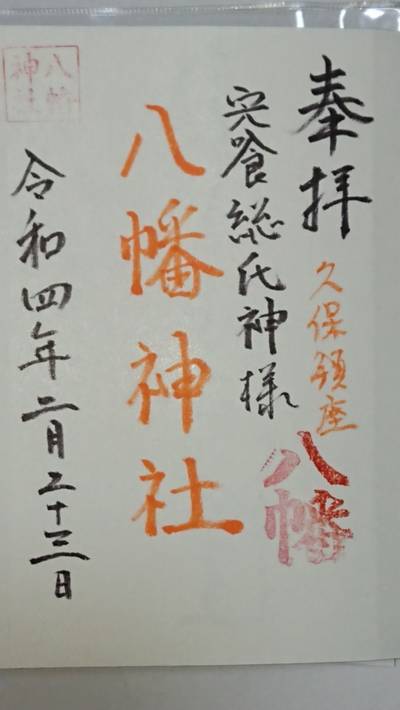 奉拝
久保鎮座
八幡
宍喰総氏神様
八幡神社
令和四年二月二十三日
八幡
神社